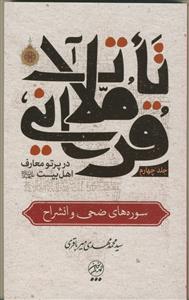 تأملات قرآنی
جلد چهارم
در پرتو معارف
اهل بیت
سوره‌های ضحی و انشراح
سید محمدمهدی میرباقری